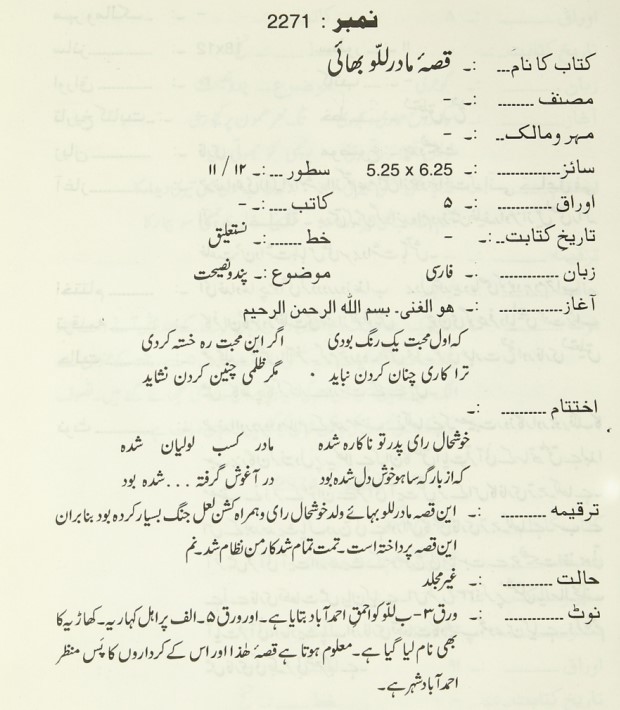 نمبر : 2271
کتاب کا نام... :۔ قصۂ مادر للّو بھائی
مصنف ........ :۔ -
مہر و مالک.. :۔ -
سائز............. :۔ 5.25 x 6.25 سطور ... :۔ ۱۲ / ۱۱
اوراق ........... :۔ ۵ کاتب .... :۔ -
تاریخ کتابت.. :۔ - خط ....... :۔ نستعلیق
زبان ............ :۔ فارسی موضوع :۔ پند و نصیحت
آغاز............. :۔ هو الغنی۔ بسم الله الرحمن الرحیم
که اول محبت یک رنگ بودی اگر این محبت ره خته کردی
ترا کاری چنان کردن نباید مگر ظلمی چنین کردن نشاید
اختتام .......... :۔
خوشحال رای پدر تو ناکاره شده مادر کسب لولیان شده
که از بارگه ساہو خوش دل شده بود در آغوش گرفته ... شده بود
ترقیمہ .......... :۔ این قصه مادر للو بہائے ولد خوشحال رای و همراه کشن لعل جنگ بسیار کرده بود بنا بران
این قصه پرداخته است۔ تمت تمام شد کار من نظام شد۔ نم
حالت .......... :۔ غیر مجلد
نوٹ ............ :۔ ورق ۳۔ ب للّو کو احمق احمد آباد بتایا ہے۔ اور ورق ۵۔ الف پر اہل کہاریہ۔ کھاڑیہ کا
بھی نام لیا گیا ہے۔ معلوم ہوتا ہے قصۂ ھٰذا اور اس کے کرداروں کا پَس منظر
احمد آباد شہر ہے۔